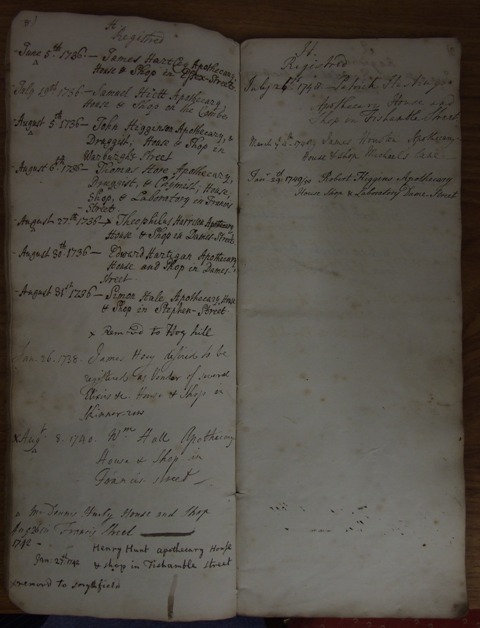 H
Registred
June 5th. 1736 — James Hartley Apothecary,
House & Shop in Essex-Street
July 19th 1736 — Samuel Hutt Apothecary
House & Shop on the Combe
August 5th 1736 — John Heggenson Apothecary, &
Druggist, House & Shop in
Warburghs Street
August 6th 1736 — Thomas Hore Apothecary,
Druggist, & Chymist, House,
Shop, & Laboratory in Francis
Street
August 27th 1736 x Theophilus Harrison Apothecary
House & Shop in Dames Street
August 30th 1736 — Edward Hartigan Apothecary
House and Shop in Dames
Street
August 31st 1736 — Simon Hale Apothecary, House
& Shop in Stephen-Street
x Remved to Hog hill
Jan 26. 1738. James desires to be
registered as Vender of several
Elixirs &c. House & Shop in
Skinner row
x Augt 8. 1740. Wm Hall Apothecary
House & Shop in
Francis street
Mr Dennis House and Shop
in Francis Street
1742
Jan 23d 1742 Henry Hunt apothecary House
& shop in Fishamble street
removd to Smythfield
H.
Registred
July 26th 1748 — Patrick Hartigan
Apothecary House and
Shop in Fishamble Street
March James Houston Apothecary
House & Shop Michael's Lane
Jan. 29. 1749/50 Robert Higgins Apothecary
House Shop & Laboratory Dame Street